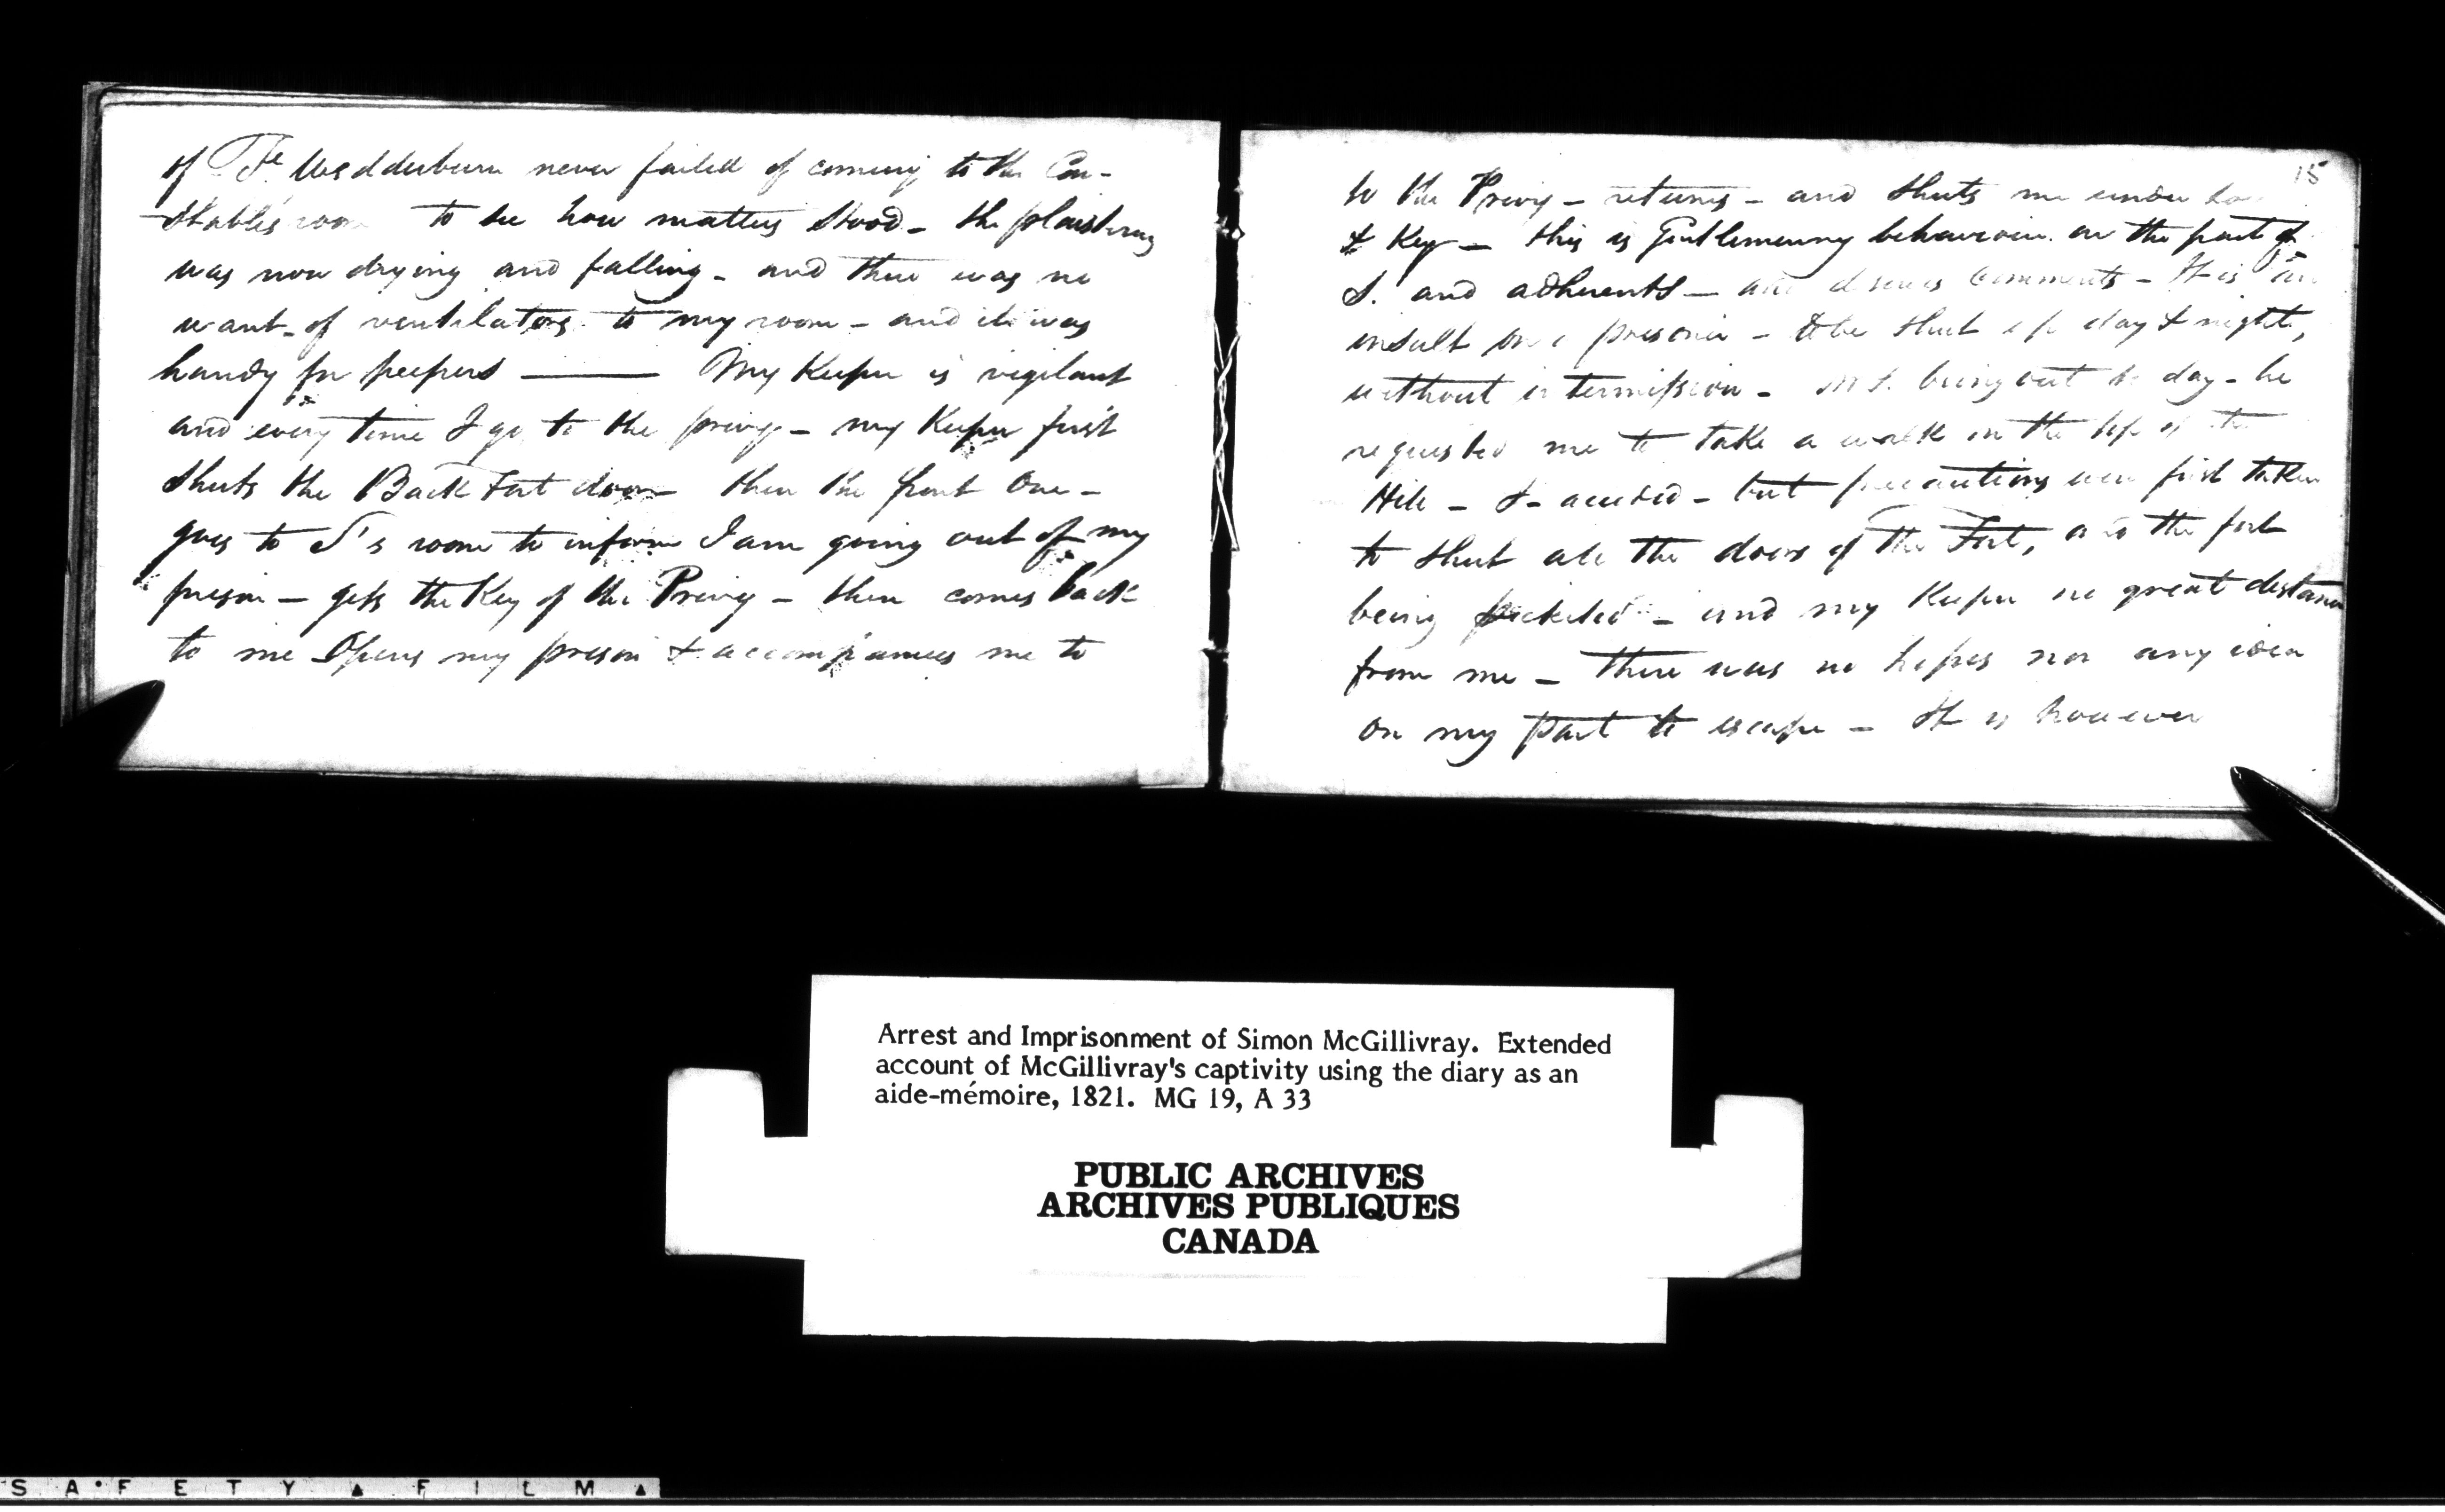 of Ft. Wedderburn never failed of coming to the Con-
stables room to see how matters stood - the plaistering
was now drying and falling - and there was no
want of ventilators to my room - and it was
handy for peepers —— My Keeper is vigilant
and every time I go to the privy - my Keeper first
shuts the Back Fort door - then the front One -
goes to S's room to inform I am going out of my
prison - gets the Key of the Privy - then comes back
to me Opens my prison & accompanies me to
15
to the Privy - returns - and shuts me under
& Key - this is Gentlemanny behaviour on the part of
S. and adherents - and deserves Comments - It is an
insult on a prisoner - to be shut up day & night,
without intermission - Mr S. being out to day - he
requested me to take a walk on the top of the
Hill - I acceded - but precautions were first taken
to shut all the doors of the Fort, and the fort
being picketed - and my Keeper no great distance
from me - there was no hopes nor any idea
on my part to escape - It is however
Arrest and Imprisonment of Simon McGillivray. Extended
account of McGillivray's captivity using the diary as an
aide-mémoire, 1821. MG 19, A 33
PUBLIC ARCHIVES
ARCHIVES PUBLIQUES
CANADA
SAFETY FILM